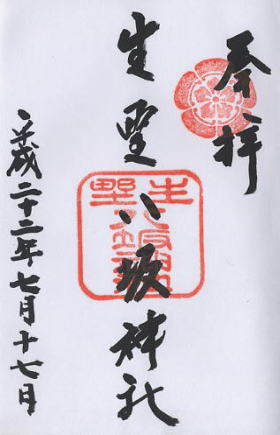 奉拝
生野八坂神社
平成二十二年七月十七日